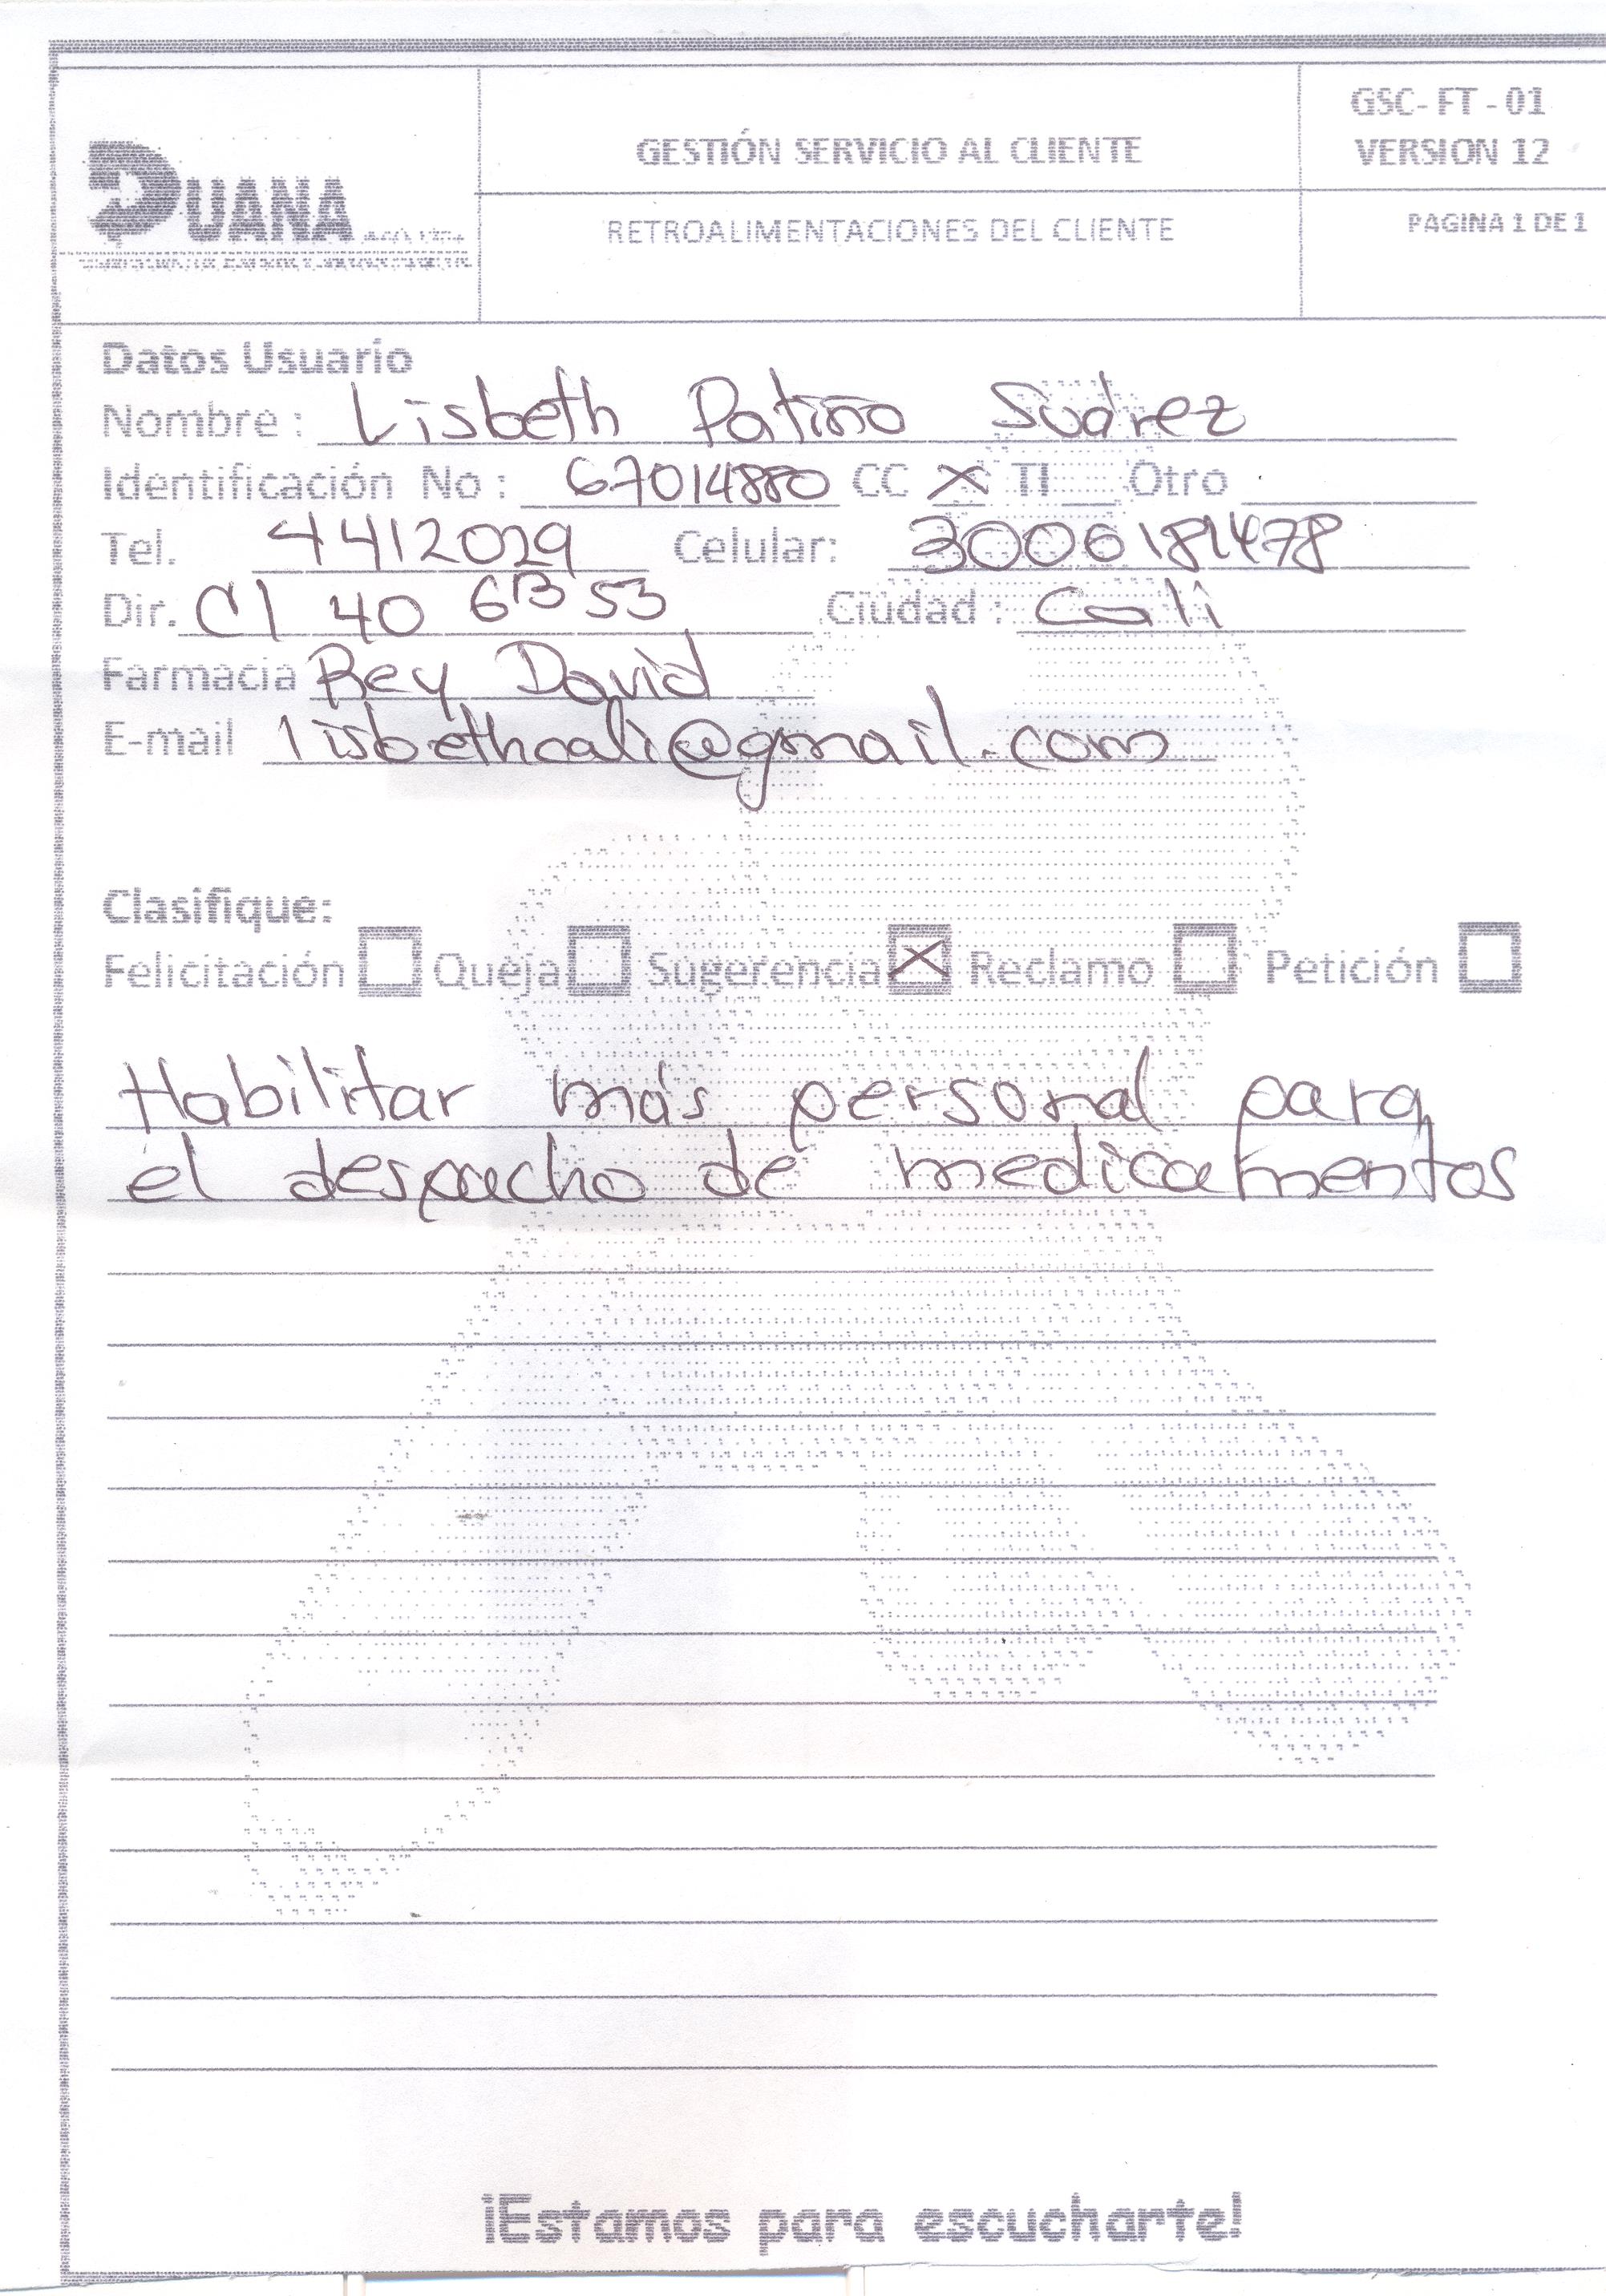 GSC-FT-01
GESTIÓN SERVICIO AL CLIENTE
VERSION 12
DUANA
RETROALIMENTACIONES DEL CLIENTE
PAGINA 1 DE 1
Datos Usuario
Nombre: Lisbeth Patiño Suárez
Identificación No: 67014880 CC X TI Otro
Tel. 4412029 Celular: 3006181478
Dir. Cl 40 6B 53 Ciudad: Cali
Farmacia Rey David
E-mail lisbethcali@gmail.com
Clasifique:
Felicitación Queja Sugerencia X Reclamo Petición
Habilitar más personal para
el despacho de medicamentos
¡Estamos para escucharte!